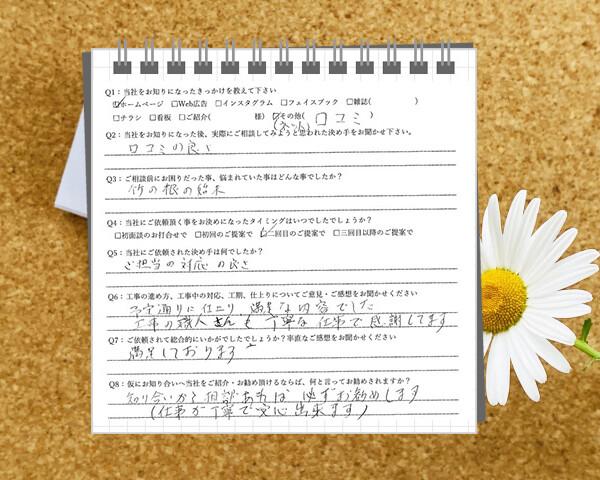 Q1：当社をお知りになったきっかけを教えて下さい
☑ホームページ　□Web広告　□インスタグラム　□フェイスブック　□雑誌(　　　　)
□チラシ　□看板　□ご紹介(　　　　様)　☑その他(口コミ)
(ネット)
Q2：当社をお知りになった後、実際にご相談してみようと思われた決め手をお聞かせ下さい。
口コミの良さ
Q3：ご相談前にお困りだった事、悩まれていた事はどんな事でしたか？
竹の根の始末
Q4：当社にご依頼頂く事をお決めになったタイミングはいつでしたでしょうか？
□初面談のお打合せで　□初回のご提案で　☑二回目のご提案で　□三回目以降のご提案で
Q5：当社にご依頼された決め手は何でしたか？
ご担当の対応の良さ
Q6：工事の進め方、工事中の対応、工期、仕上りについてご意見・ご感想をお聞かせください
予定通りに仕上り 満足な内容でした
工事の職人さんも丁寧な仕事で感謝してます
Q7：ご依頼されて総合的にいかがでしたでしょうか？率直なご感想をお聞かせください
満足しております
Q8：仮にお知り合いへ当社をご紹介・お勧め頂けるならば、何と言ってお勧めされますか？
知り合いから相談あれば 必ずお勧めします
(仕事が丁寧で安心出来ます)